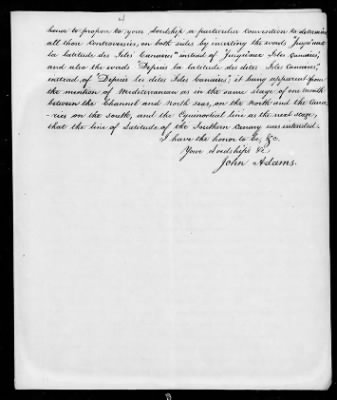 4
honor to propose to your Lordship a particular Convention to determine
all those Controversies, on both sides by inserting the words "Jusqu'aux
la latitude des Isles Canaries" instead of Jusqu'aux Isles Canaries,"
and also the words "Depuis la latitude des dites Isles Canaries,"
instead of "Depuis les dites Isles Canaries"; it being apparent from
the mention of Mediterranean as in the same stage of one month
between the Channel and North seas, on the North and the Cana-
-ries on the south, and the Equinoctial line as the next stage,
that the line of Latitude of the Southern Canary was intended.
I have the honor to be, &c.
Your Lordships &c
John Adams.